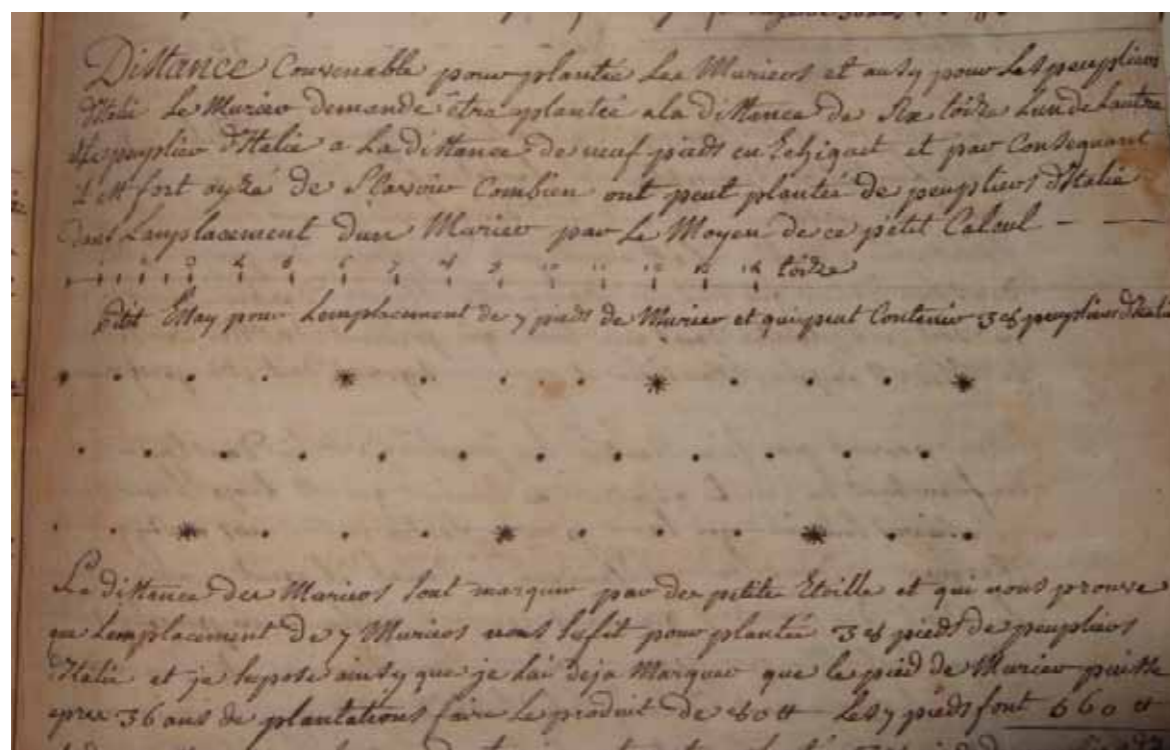 Distance Convenable pour plantée Les Muriers et ausy pour Les peupliers
d'Italie Le Murier demande être plantée ala distance de Six toize Lun de Lautre
Le peuplier d'Italie a La distance de neuf pieds en Echiquet et par Consequant
il est fort ayzé de Scavoir Combien ont peut plantée de peupliers d'Italie
dans Lamplacement dun Murier par Le Moyen de ce petit Calcul
1 2 3 4 5 6 7 8 9 10 11 12 13 14 toize
petit Essay pour Lemplacement de 7 pieds de Murier et qui peut Contenir 38 peupliers d'Italie
La distance des Muriers sont marquer par des petite Etoille et qui vous prouve
que Lemplacement de 7 Muriers vous sufit pour plantée 38 pieds de peupliers
d'Italie et je supose ainsy que je Lai deja Marquer que le pied de Murier puisse
apres 36 ans de plantations faire Le produit de 80 tt Les 7 pieds font 560 tt